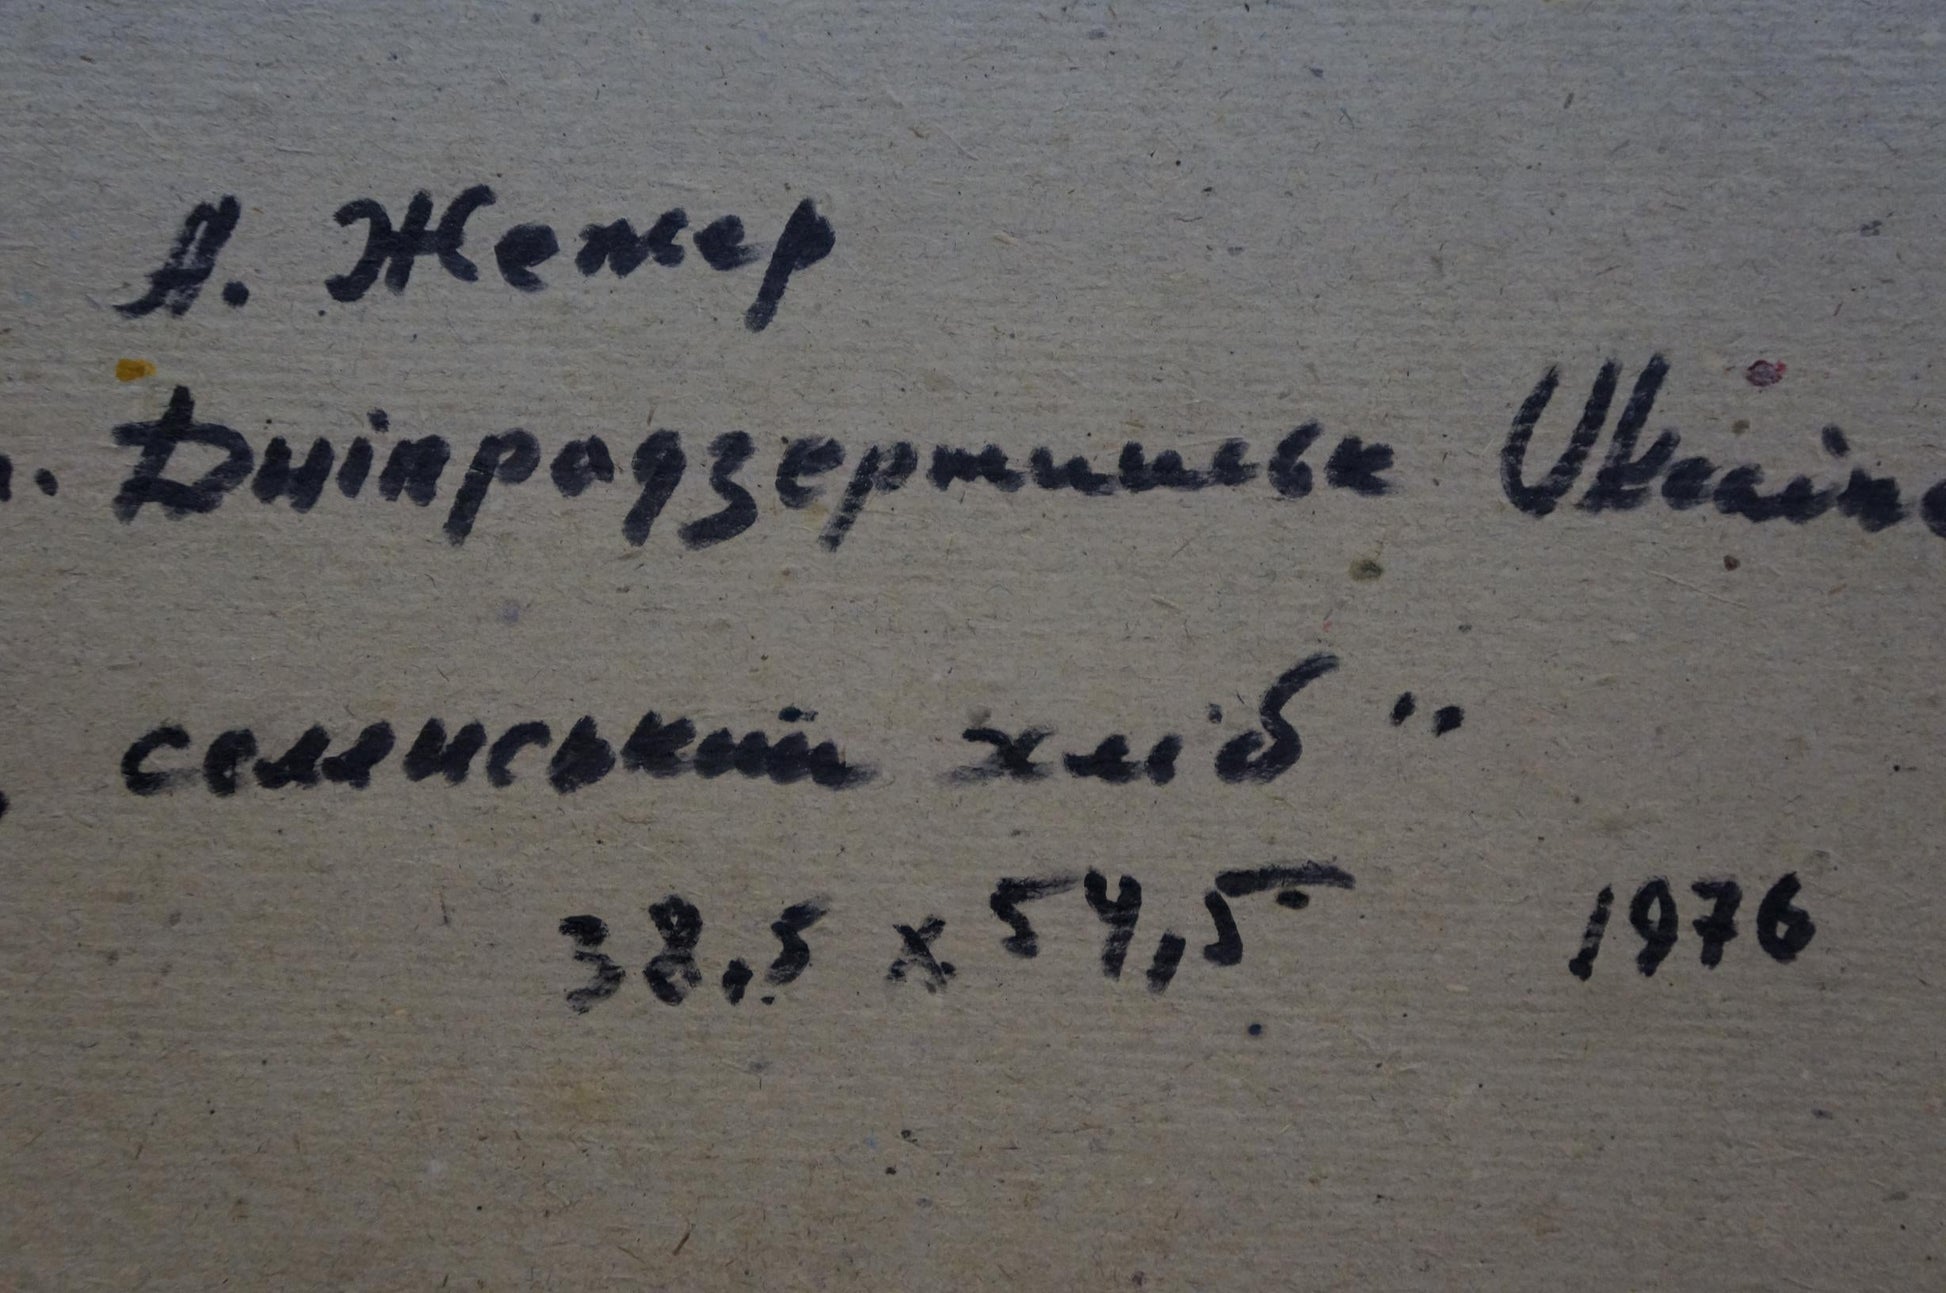 А. Жежер
Дніпродзержинськ Ukraina
селянський хліб"
38,5 x 54,5 1976